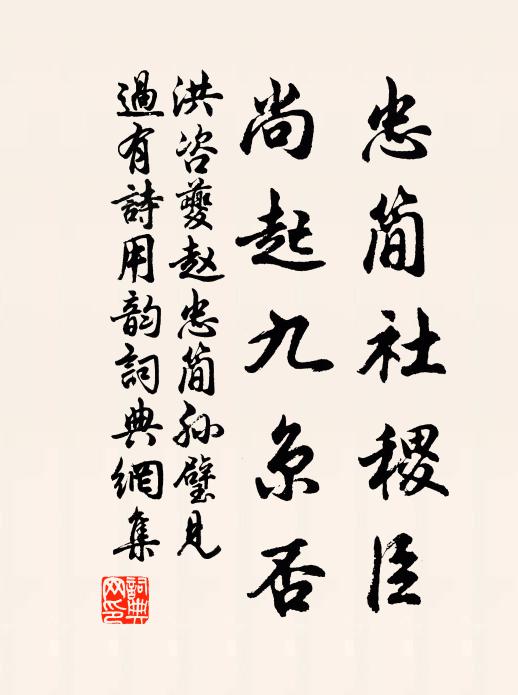 忠简社稷臣
尚起九京否
洪咨夔赵忠简孙璧见
過有詩用韵詞典網集
詞典网印